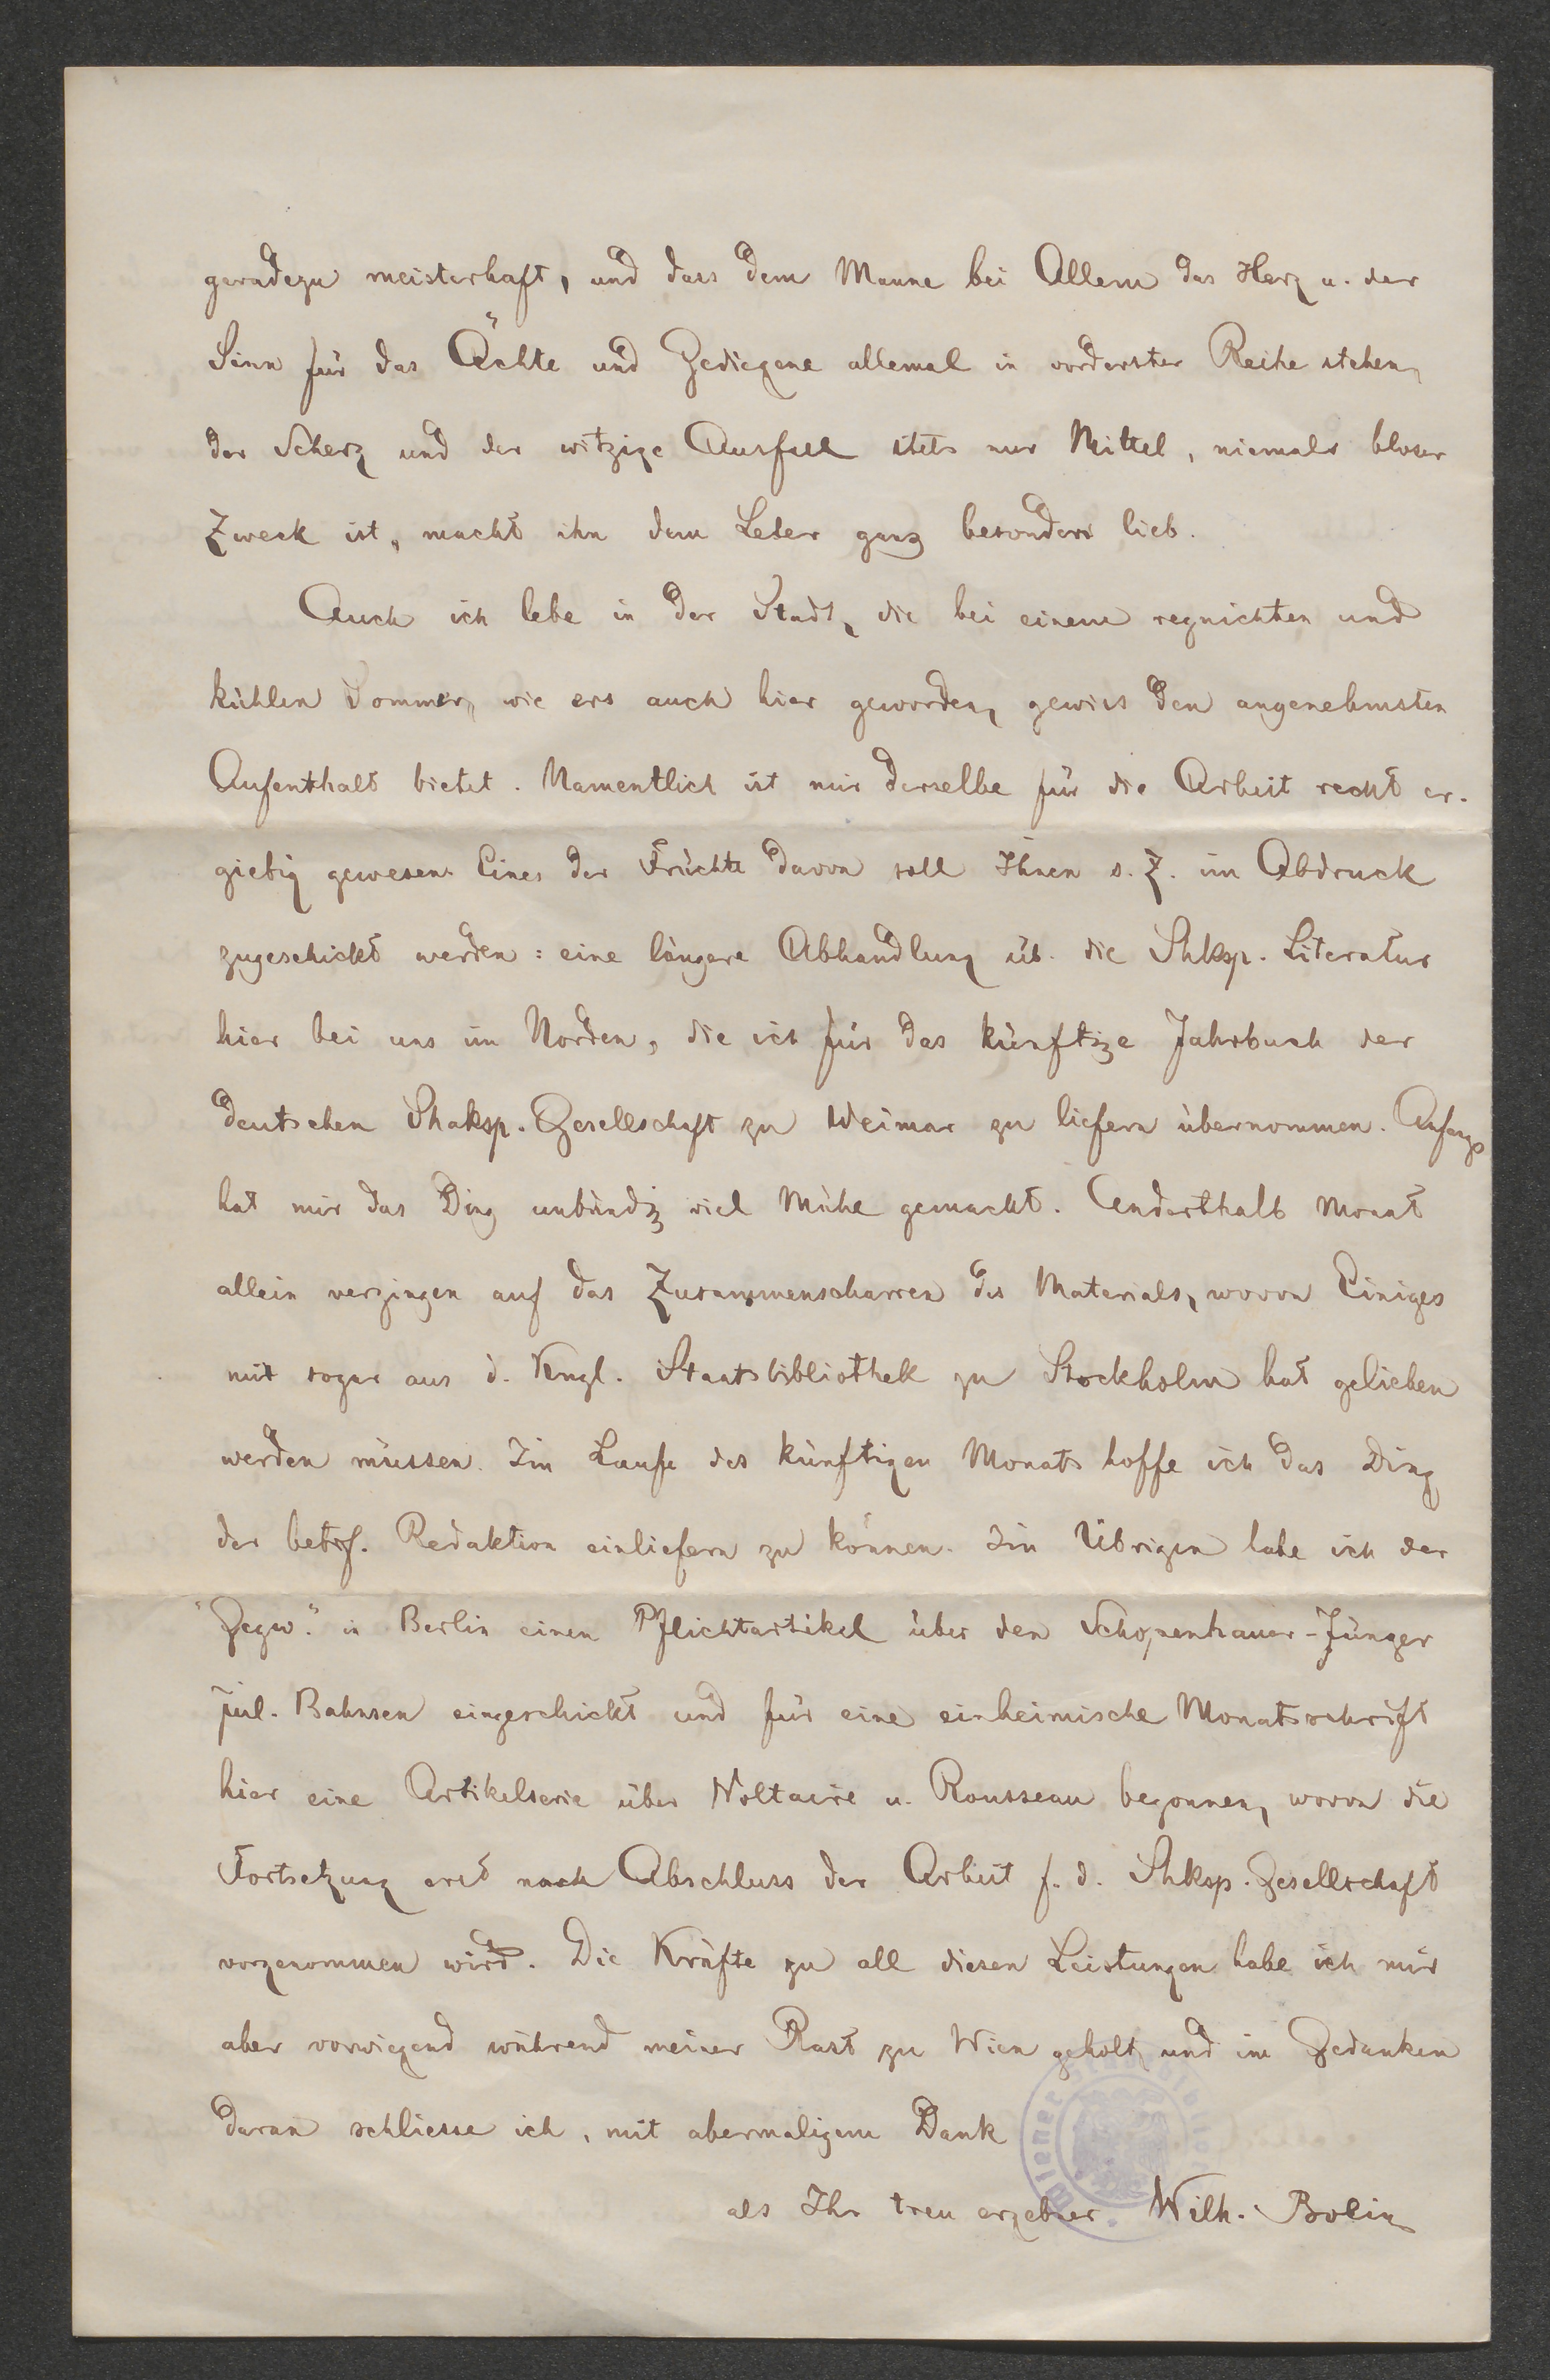 geradezu meisterhaft, und dass dem Manne bei Allem das Herz u. der
Sinn für das Ächte und Gediegene allemal in vorderster Reihe stehen,
der Scherz und der witzige Ausfall stets nur Mittel, niemals bloser
Zweck ist, macht ihn dem Leser ganz besonders lieb.
Auch ich lebe in der Stadt, die bei einem regnichten und
kühlen Sommer, wie ers auch hier geworden, gewiss den angenehmsten
Aufenthalt bietet. Namentlich ist mir derselbe für die Arbeit recht er-
giebig gewesen. Eines der Früchte davon soll Ihnen s. Z. im Abdruck
zugeschickt werden: eine längere Abhandlung üb. die Shksp. Literatur
hier bei uns im Norden, die ich für das künftige Jahrbuch der
deutschen Shaksp. Gesellschaft zu Weimar zu liefern übernommen. Anfangs
hat mir das Ding unbändig viel Mühe gemacht. Anderthalb Monat
allein vergingen auf das Zusammenscharren des Materials, wovon Einiges
mit sogar aus d. Kngl. Staatsbibliothek zu Stockholm hat geliehen
werden müssen. Im Laufe des künftigen Monats hoffe ich das Ding
der betrf. Redaktion einliefern zu können. Im Übrigen habe ich der
"Gegw." in Berlin einen Pflichtartikel über den Schopenhauer-Jünger
Jul. Bahnsen eingeschickt und für eine einheimische Monatsschrift
hier eine Artikelserie über Voltaire u. Rousseau begonnen, wovon die
Fortsetzung erst nach Abschluss der Arbeit f. d. Shksp. Gesellschaft
vorgenommen wird. Die Kräfte zu all diesen Leistungen habe ich mir
aber vorwiegend während meiner Rast zu Wien geholt, und im Gedanken
daran schliesse ich, mit abermaligem Dank
als Ihr treu ergebner Wilh. Bolin